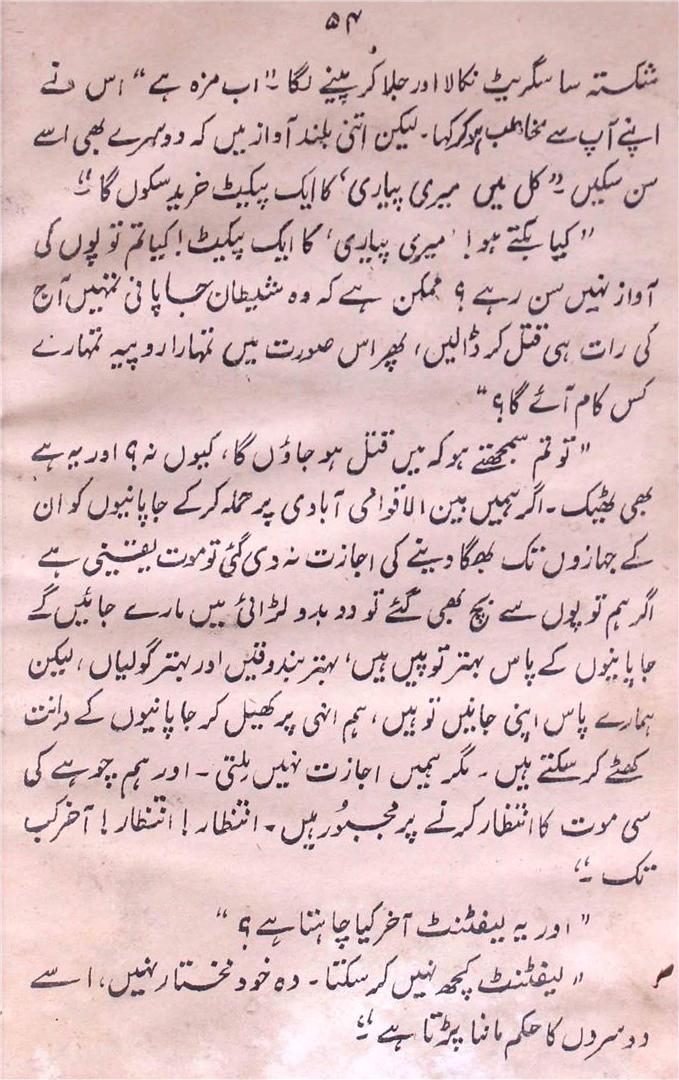 ۵۴
شکستہ سا سگریٹ نکالا اور جلا کر پینے لگا ۔ "اب مزہ ہے" اس نے
اپنے آپ سے مخاطب ہو کر کہا۔ لیکن اتنی بلند آواز میں کہ دوسرے بھی اسے
سن سکیں ۔ "کل میں میری پیاری، کا ایک پیکیٹ خرید سکوں گا ۔"
"کیا بکتے ہو! 'میری پیاری، کا ایک پیکیٹ! کیا تم توپوں کی
آواز نہیں سن رہے ؟ ممکن ہے کہ وہ شیطان جاپانی تمہیں آج
کی رات ہی قتل کر ڈالیں، پھر اس صورت میں تمہارا روپیہ تمہارے
کس کام آئے گا؟"
"تو تم سمجھتے ہو کہ میں قتل ہو جاؤں گا، کیوں نہ؟ اور یہ ہے
بھی ٹھیک ۔ اگر ہمیں بین الاقوامی آبادی پر حملہ کر کے جاپانیوں کو ان
کے جہازوں تک بھگا دینے کی اجازت نہ دی گئی تو موت یقینی ہے
اگر ہم توپوں سے بچ بھی گئے تو دو بدو لڑائی میں مارے جائیں گے
جاپانیوں کے پاس بہتر توپیں ہیں، بہتر بندوقیں اور بہتر گولیاں ، لیکن
ہمارے پاس اپنی جانیں تو ہیں، ہم انہی پر کھیل کر جاپانیوں کے دانت
کھٹے کر سکتے ہیں ۔ مگر ہمیں اجازت نہیں ملتی ۔ اور ہم چوہے کی
سی موت کا انتظار کرنے پر مجبُور ہیں ۔ انتظار! انتظار! آخر کب
تک ۔"
"اور یہ لیفٹننٹ آخر کیا چاہتا ہے؟"
"لیفٹننٹ کچھ نہیں کر سکتا ۔ وہ خود مختار نہیں، اسے
دوسروں کا حکم ماننا پڑتا ہے ۔"